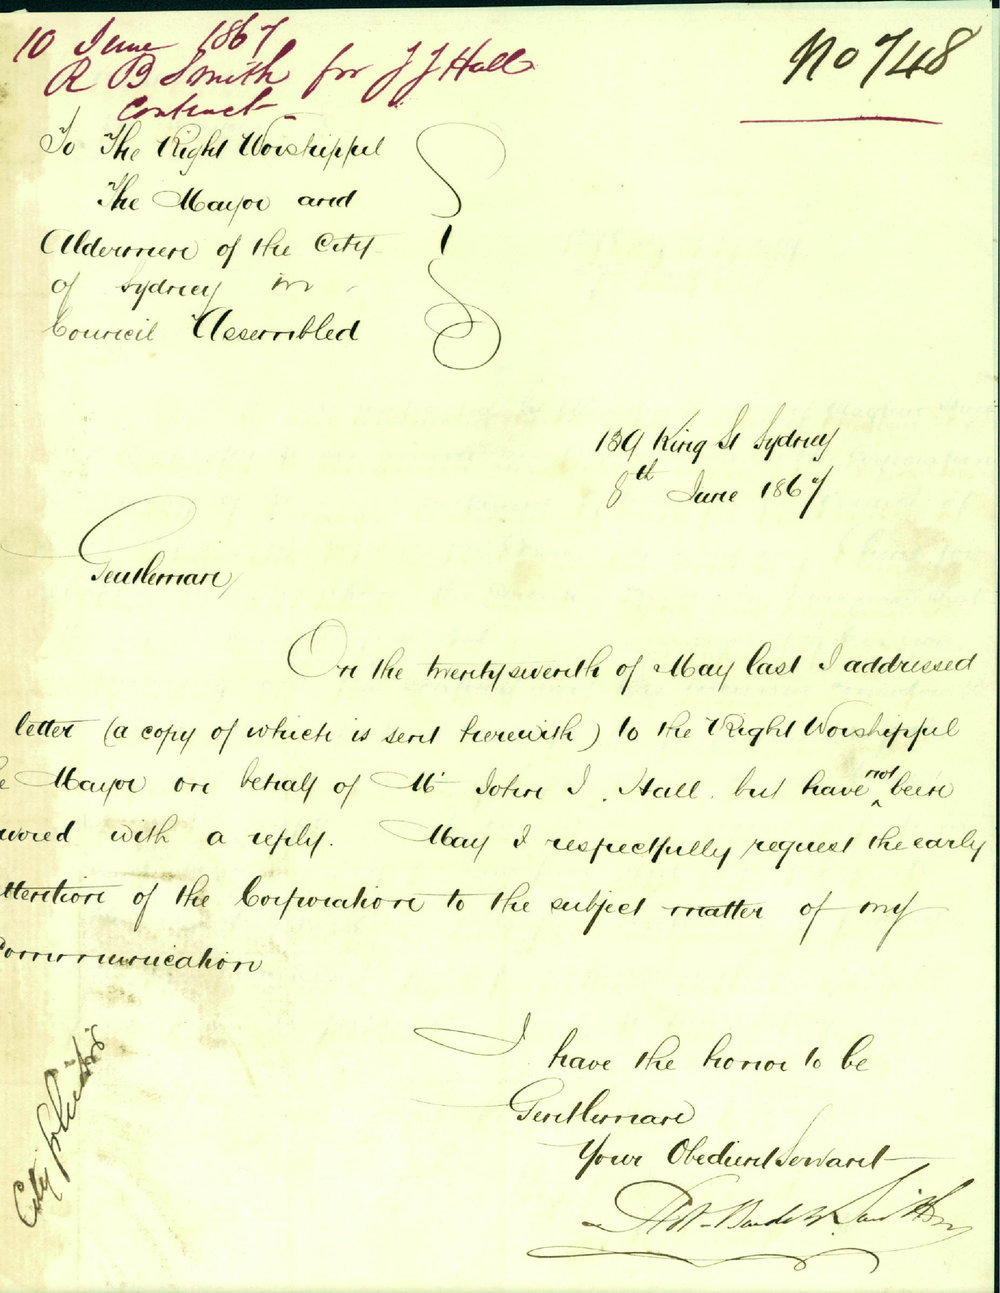 10 June 1867
No 748
R B Smith for J J Hall
Contract
To The Right Worshippul
The Mayor and
Aldermen of the City
of Sydney in
Council Assembled
189 King St Sydney
8th June 1867
Gentlemen
On the twentyseventh of May last I addressed
letter (a copy of which is sent herewith) to the Right Worshippul
e Mayor on behalf of Mr John J. Hall but have not been
vored with a reply. May I respectfully request the early
ttention of the Corporation to the subject matter of my
Communication
I have the honor to be
Gentlemen
Your Obedient Servant
City Solicitor